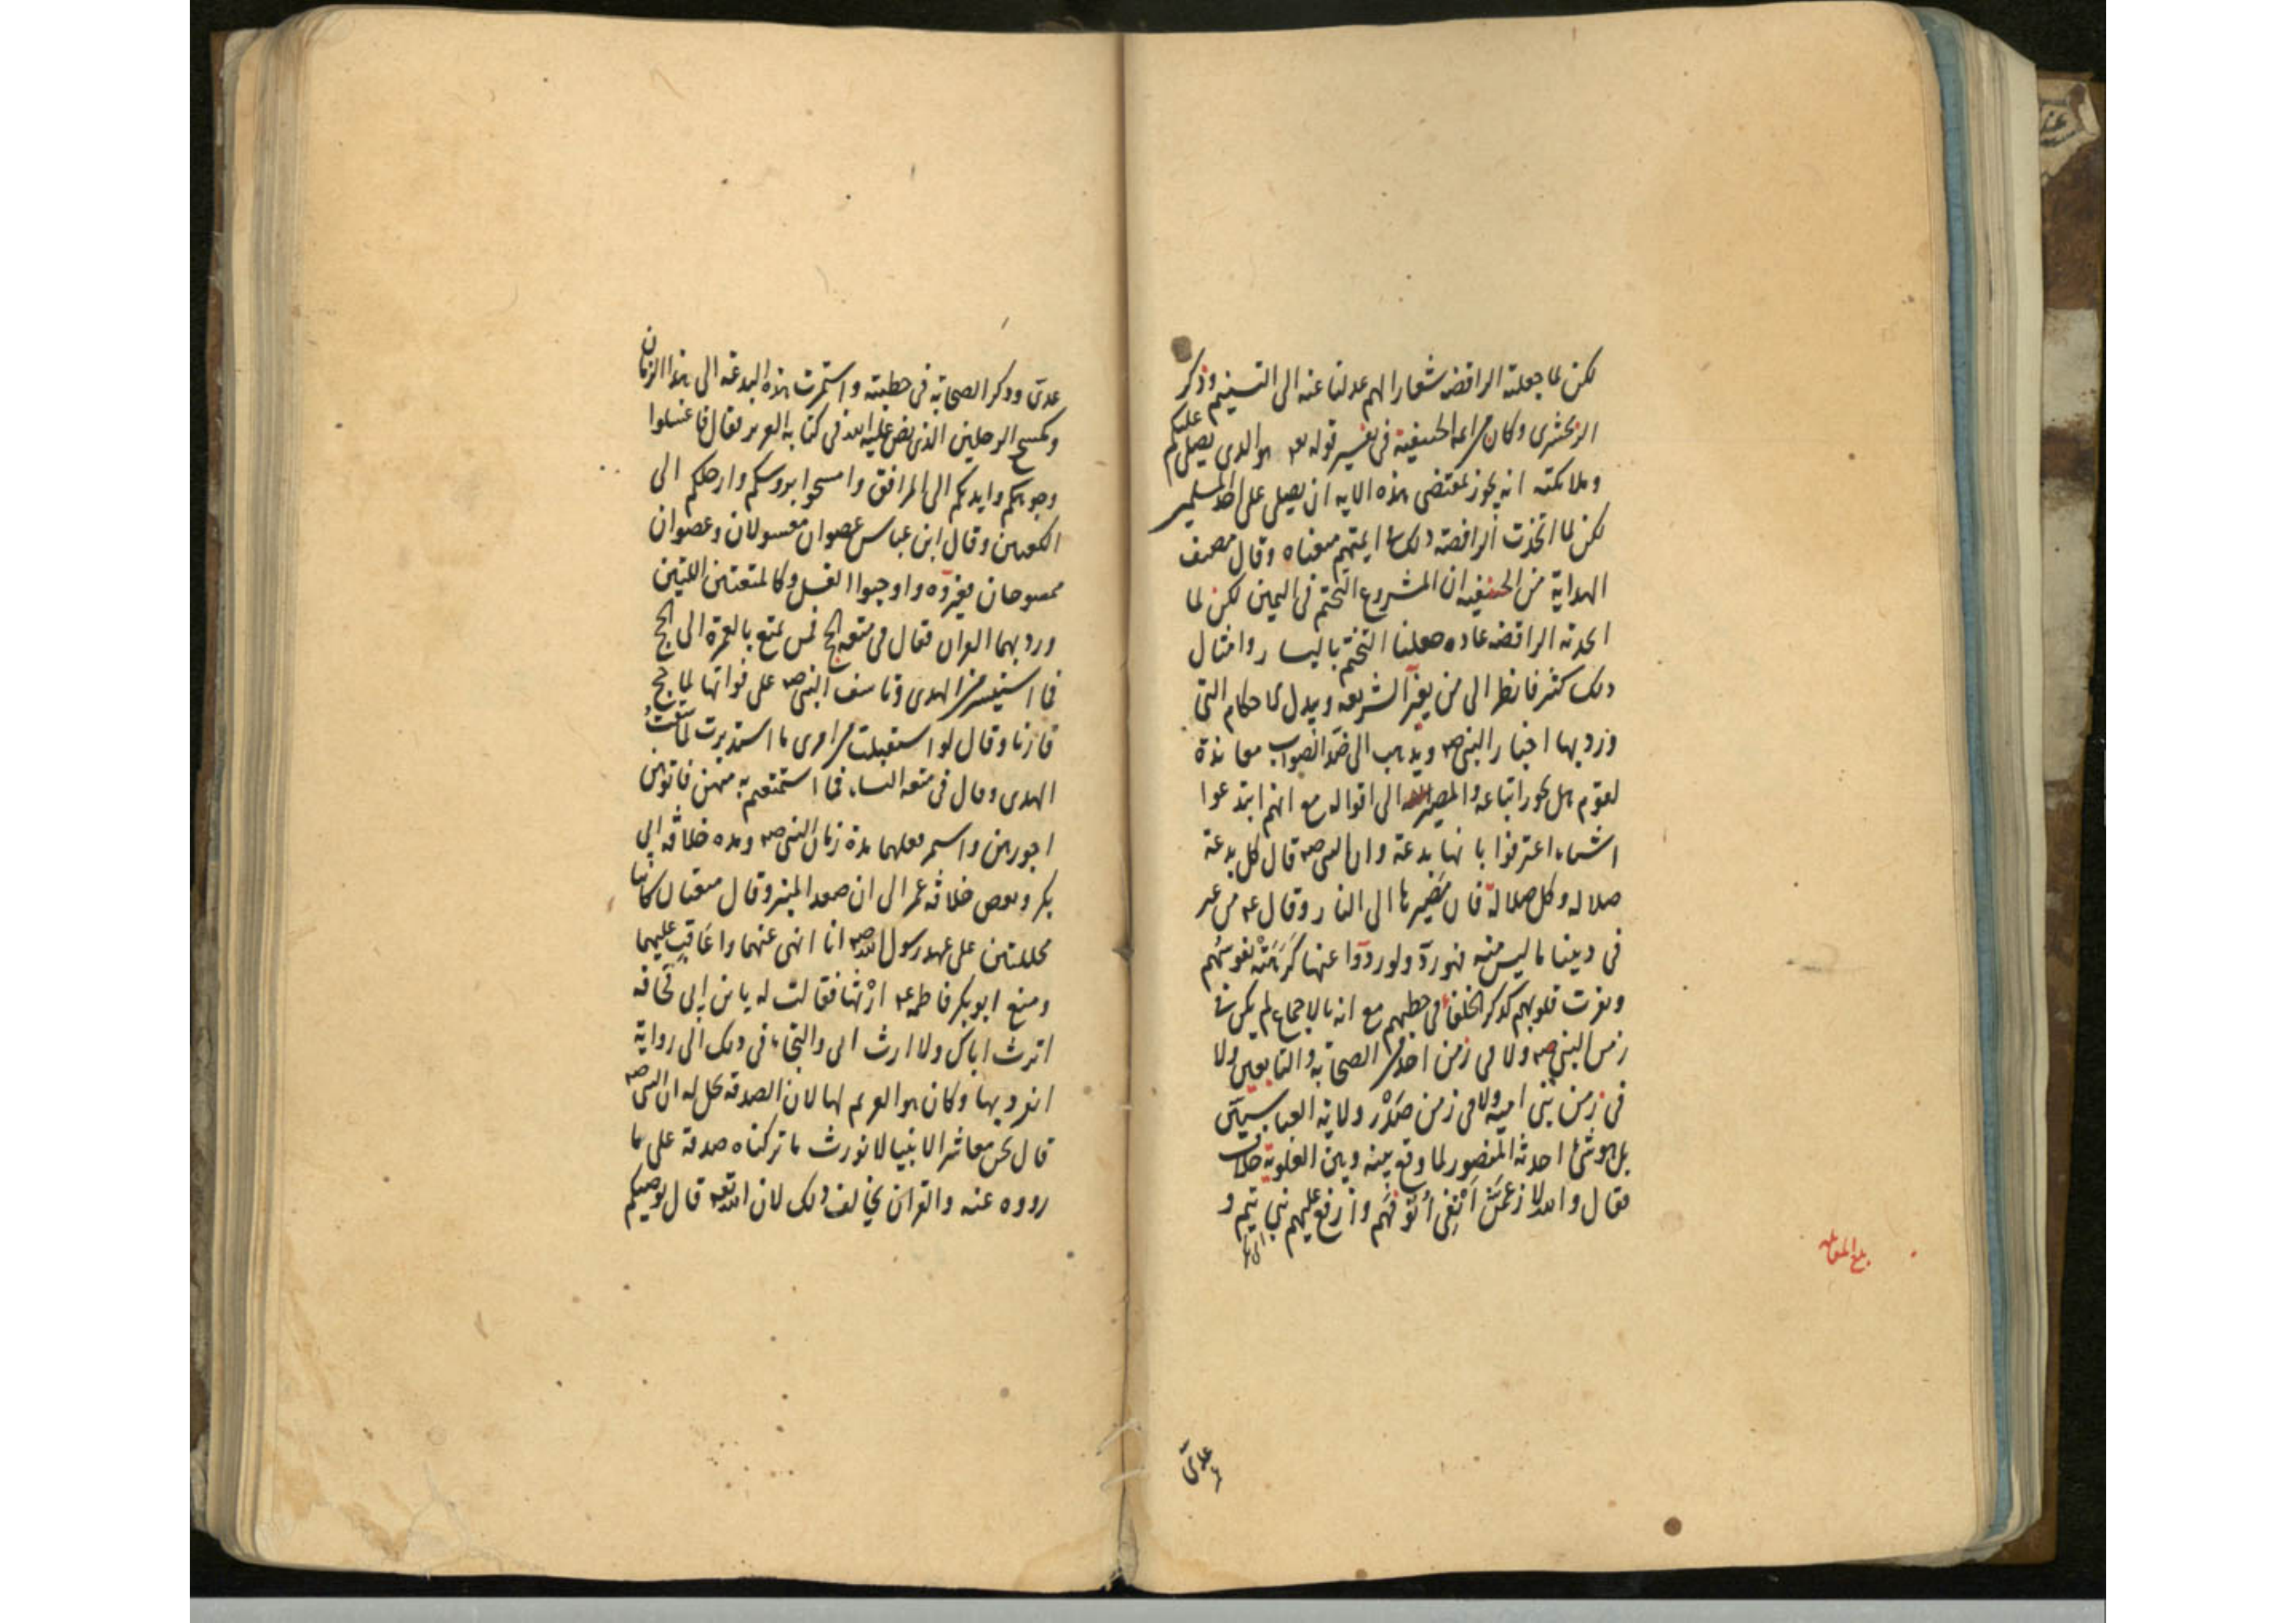 لكن لما جعلته الرافضه شعارا لهم عدلنا عنه الى التسنيم وذكر
الزمخشرى وكان من ائمه الحنفية فى تفسير قوله تعه هو الذى يصلى عليكم
وملائكته انه يجوز بمقتضى هذه الايه ان يصلى على احاد المسلمين
لكن لما اتخذت الرافضة ذلك فى ايمتهم منعناه وقال مصنف
الهداية من الحنفيه ان المشروع التختم فى اليمين لكن لما
اتخذته الرافضه عاده جعلنا التختم باليسار وامثال
ذلك كثير فانظر الى من يغيّر الشريعه ويبدل الاحكام التى
ورد بها اخبار النبى صه ويذهب الى ضدّ الصواب معاندة
لقوم هل يجوز اتباعه والمصير الى اقواله مع انهم ابتدعوا
اشياء اعترفوا بانها بدعة وان النبى صه قال كل بدعة
ضلاله وكل ضلالة فان مَصيرها الى النار وقال عه من
فى ديننا ما ليس منه فهو ردّ ولو ردّوا عنها كَرِهَتْه نفوسُهم
ونفرت قلوبهم كذكر الخلفاء فى خطبهم مع انه بالاجماع لم يكن فى
زمن النبى صه ولا فى زمن احد من الصحابة والتابعين ولا
فى زمن بنى اميه ولا فى زمن صَدْر ولاية العباسيّين
بل هو شئ احدثه المنصور لما وقع بينه وبين العلوية خلاف
فقال والله لارغمَنَّ اَنْفى وأُنوفَهم وارفع عليهم بنى تيم و
عدىّ
بلغ المقابله
عدىّ وذكر الصحابة فى خطبته واستمرت هذه البدعة الى هذا الزمان
وكمسح الرجلين الذى نص عليه الله فى كتابه العزيز فقال فاغسلوا
وجوهكم وايديكم الى المرافق وامسحوا برؤسكم وارجلكم الى
الكعبين وقال ابن عباس عضوان مغسولان وعضوان
ممسوحان فغيّروه واوجبوا الغسل وكالمتعتين اللتين
ورد بهما القران فقال فى متعه الحج فمن تمتع بالعمرة الى الحج
فما استيسر من الهدى وتاسف النبى صه على فواتها لما حج
قارنا وقال لو استقبلت من امرى ما استدبرت لما سقتُ
الهدى وقال فى متعه النساء فما استمتعتم به منهن فاتوهن
اجورهن واستمر فعلهما مدة زمان النبى صه ومدة خلافه ابى
بكر وبعض خلافه عمر الى ان صعد المنبر وقال متعتان كانتا
محللتين على عهد رسول الله صه انا انهى عنهما واعاقب عليهما
ومنع ابو بكر فاطمه عه ارْثَها فقالت له يا بن ابى قحافه
اترث اباك ولا ارث ابى والتجاء فى ذلك الى رواية
انفرد بها وكان هو الغريم لها لان الصدقه تحل له ان النبى صه
قال نحن معاشر الانبيا لا نورث ما تركناه صدقة على ما
رووه عنه والقران يخالف ذلك لان الله تعه قال يوصيكم